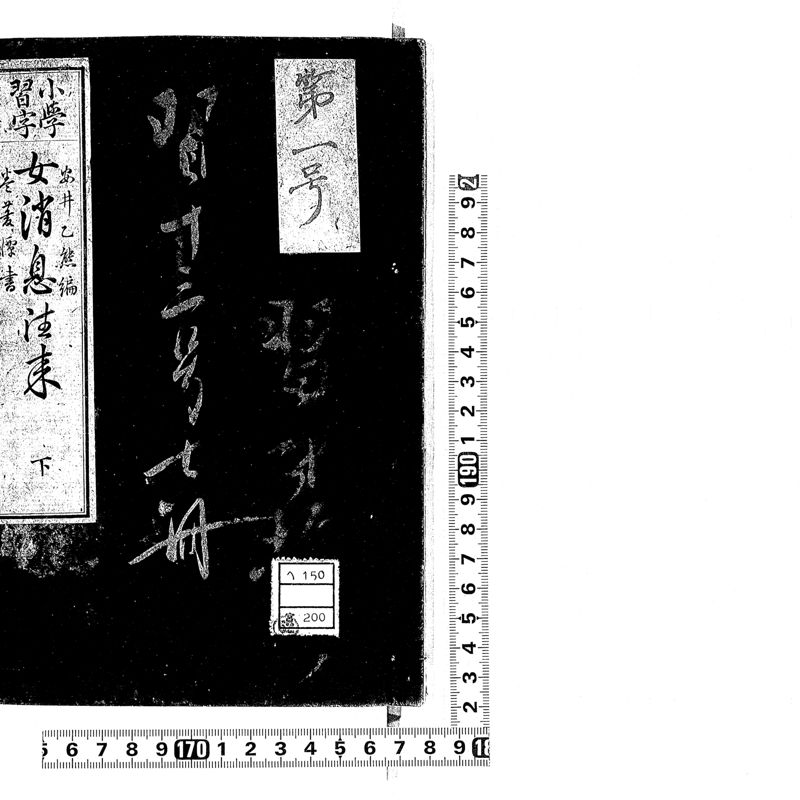 第一号
習廿二号七冊
習
小學
習字
安井乙熊編
女消息往来
下
巻菱潭書
へ 150
200
2
9
8
7
6
5
4
3
2
1
190
9
8
7
6
5
4
3
2
6 7 8 9 170 1 2 3 4 5 6 7 8 9 18